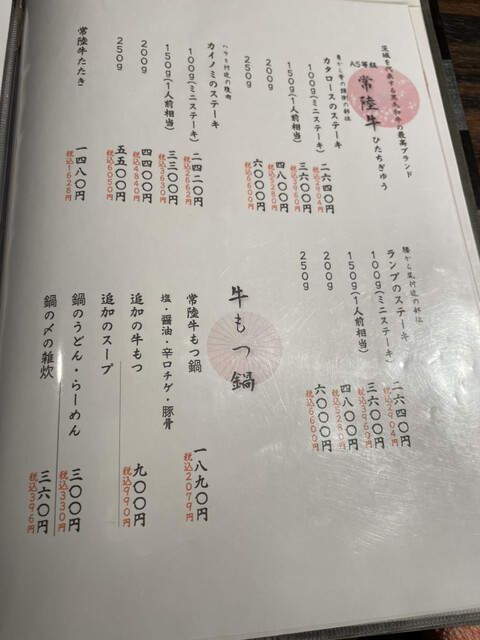 茨城を代表する黒毛和牛の最高ブランド
A5等級
常陸牛 ひたちぎゅう
カタロースのステーキ
100g(ミニステーキ) 二六四〇円
税込2904円
150g(1人前相当) 三六〇〇円
税込3960円
200g 四八〇〇円
税込5280円
250g 六〇〇〇円
税込6600円
カイノミのステーキ
ハラミ付近の腹肉
100g(ミニステーキ) 二四二〇円
税込2662円
150g(1人前相当) 三三〇〇円
税込3630円
200g 四四〇〇円
税込4840円
250g 五五〇〇円
税込6050円
常陸牛たたき 一四八〇円
税込1628円
腰から尻付近の部位
ランプのステーキ
100g(ミニステーキ) 二六四〇円
税込2904円
150g(1人前相当) 三六〇〇円
税込3960円
200g 四八〇〇円
税込5280円
250g 六〇〇〇円
税込6600円
牛もつ鍋
常陸牛もつ鍋 一八九〇円
税込2079円
塩・醤油・辛口チゲ・豚骨
追加の牛もつ 九〇〇円
税込990円
追加のスープ
鍋のうどん・らーめん 三〇〇円
税込330円
鍋の〆の雑炊 三六〇円
税込396円